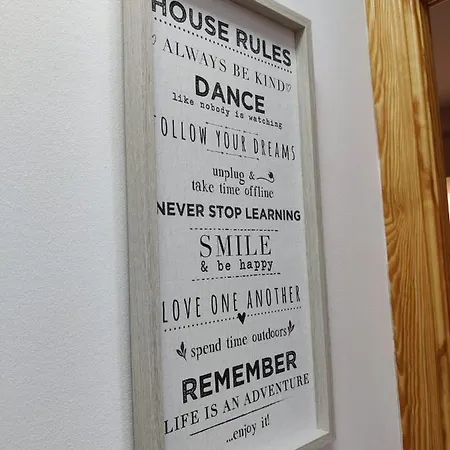 HOUSE RULES
ALWAYS BE KIND
DANCE
like nobody is watching
FOLLOW YOUR DREAMS
unplug &
take time offline
NEVER STOP LEARNING
SMILE
& be happy
LOVE ONE ANOTHER
spend time outdoors
REMEMBER
LIFE IS AN ADVENTURE
...enjoy it!